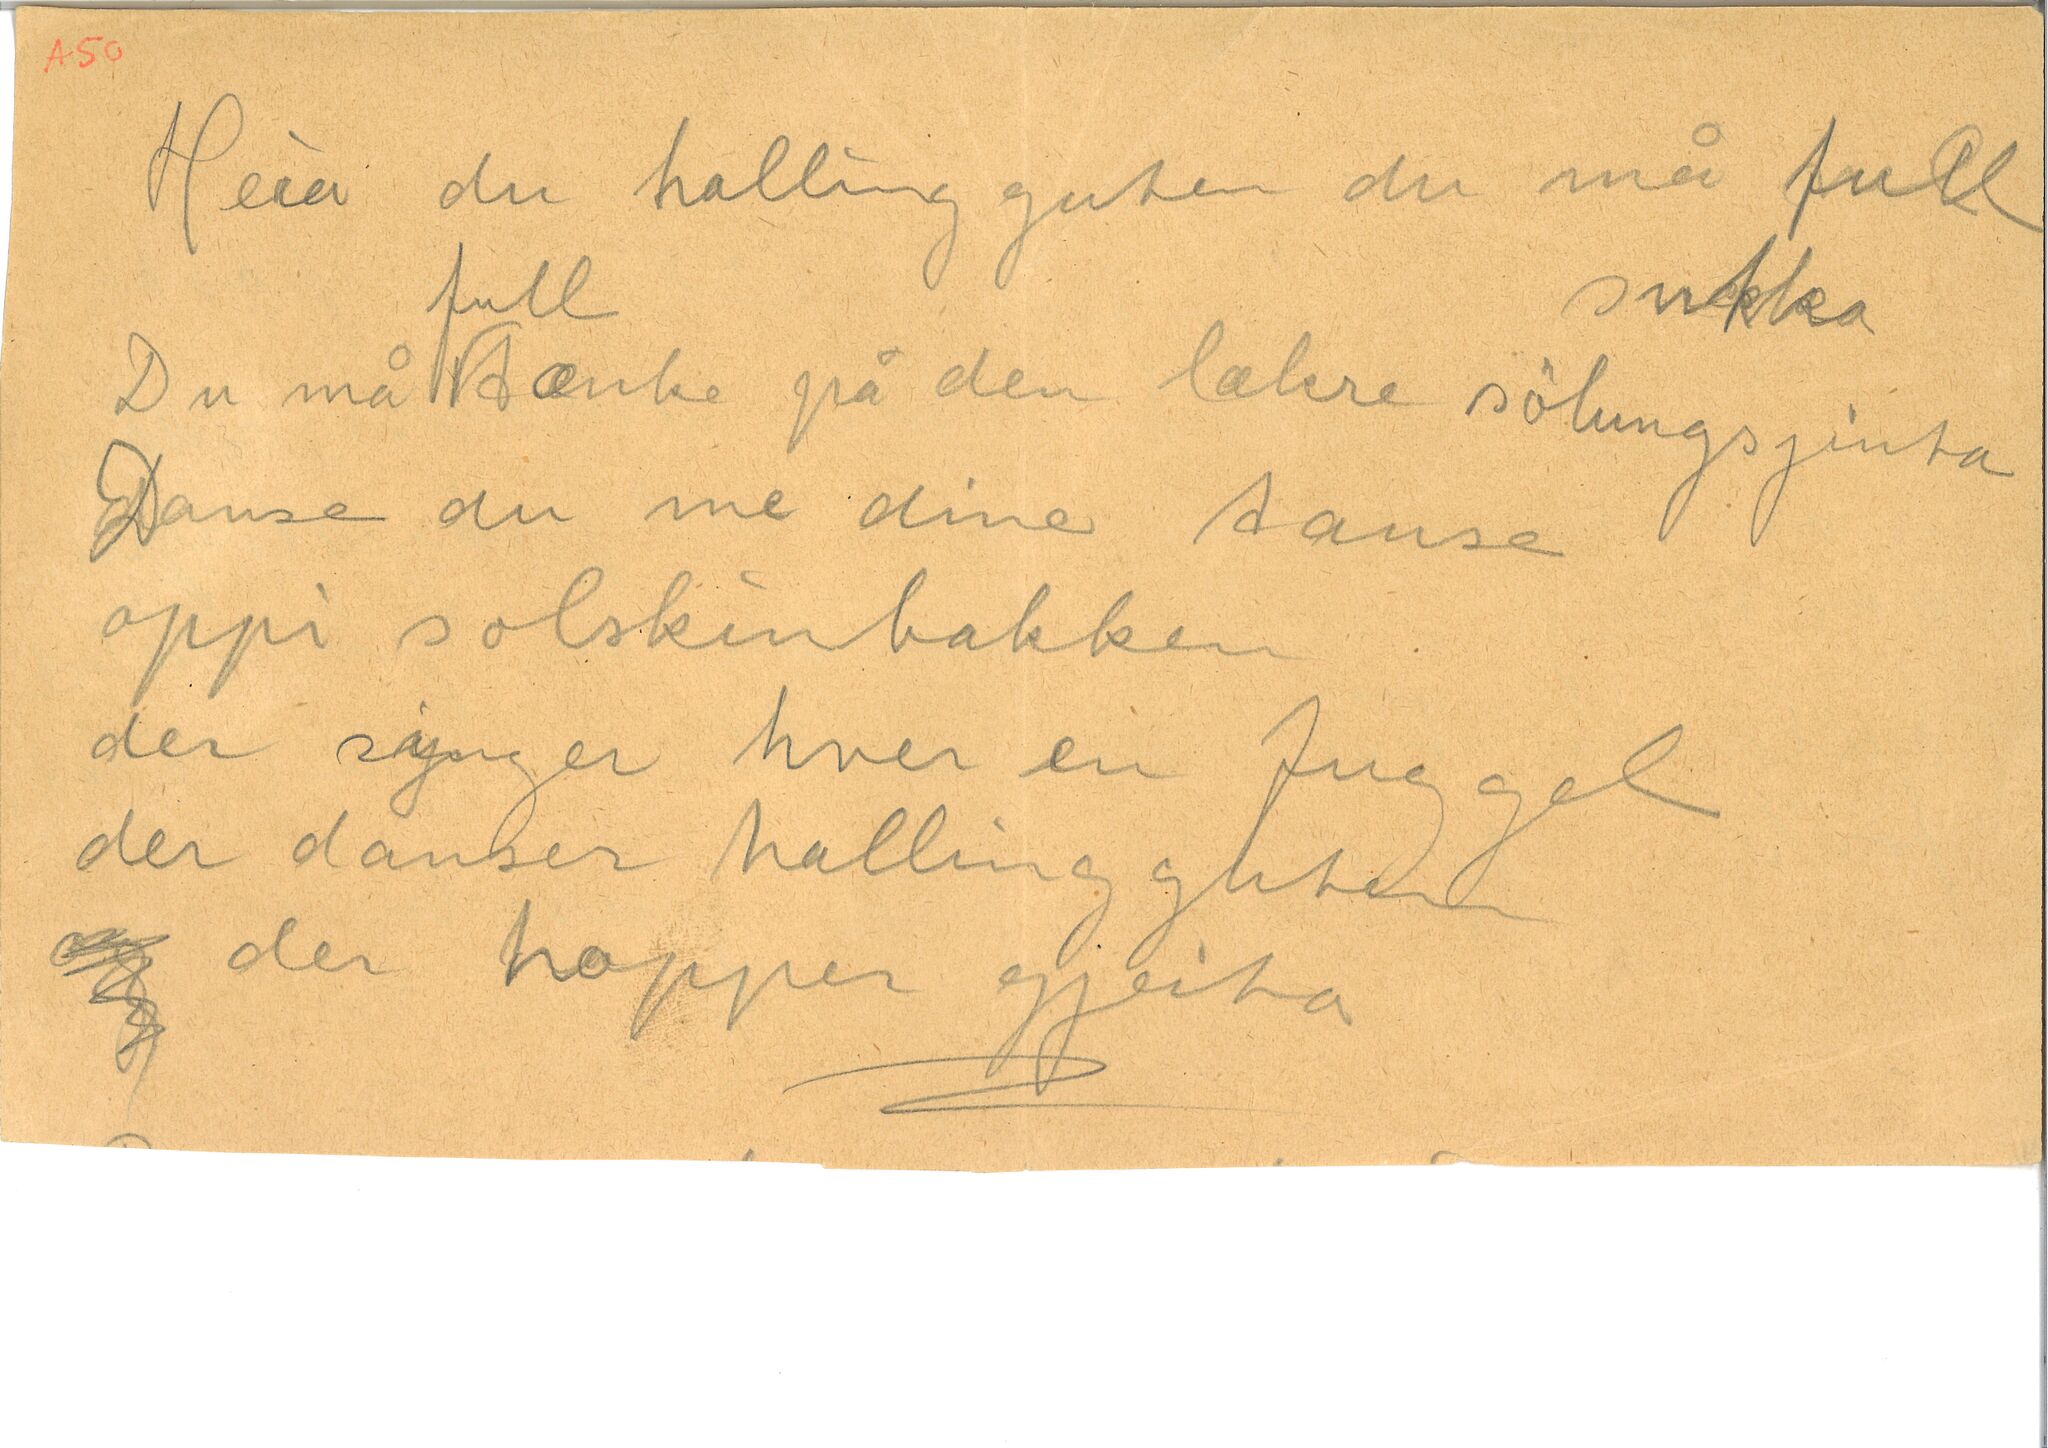 A50
Heia du hallingguten du må full
sukka
full
Du må tænke på den lækre sölungsjinta
Danse du me dine tause
oppi solskinbakken
der synger hver en fuggel
der danser hallingguten
der hopper gjeita